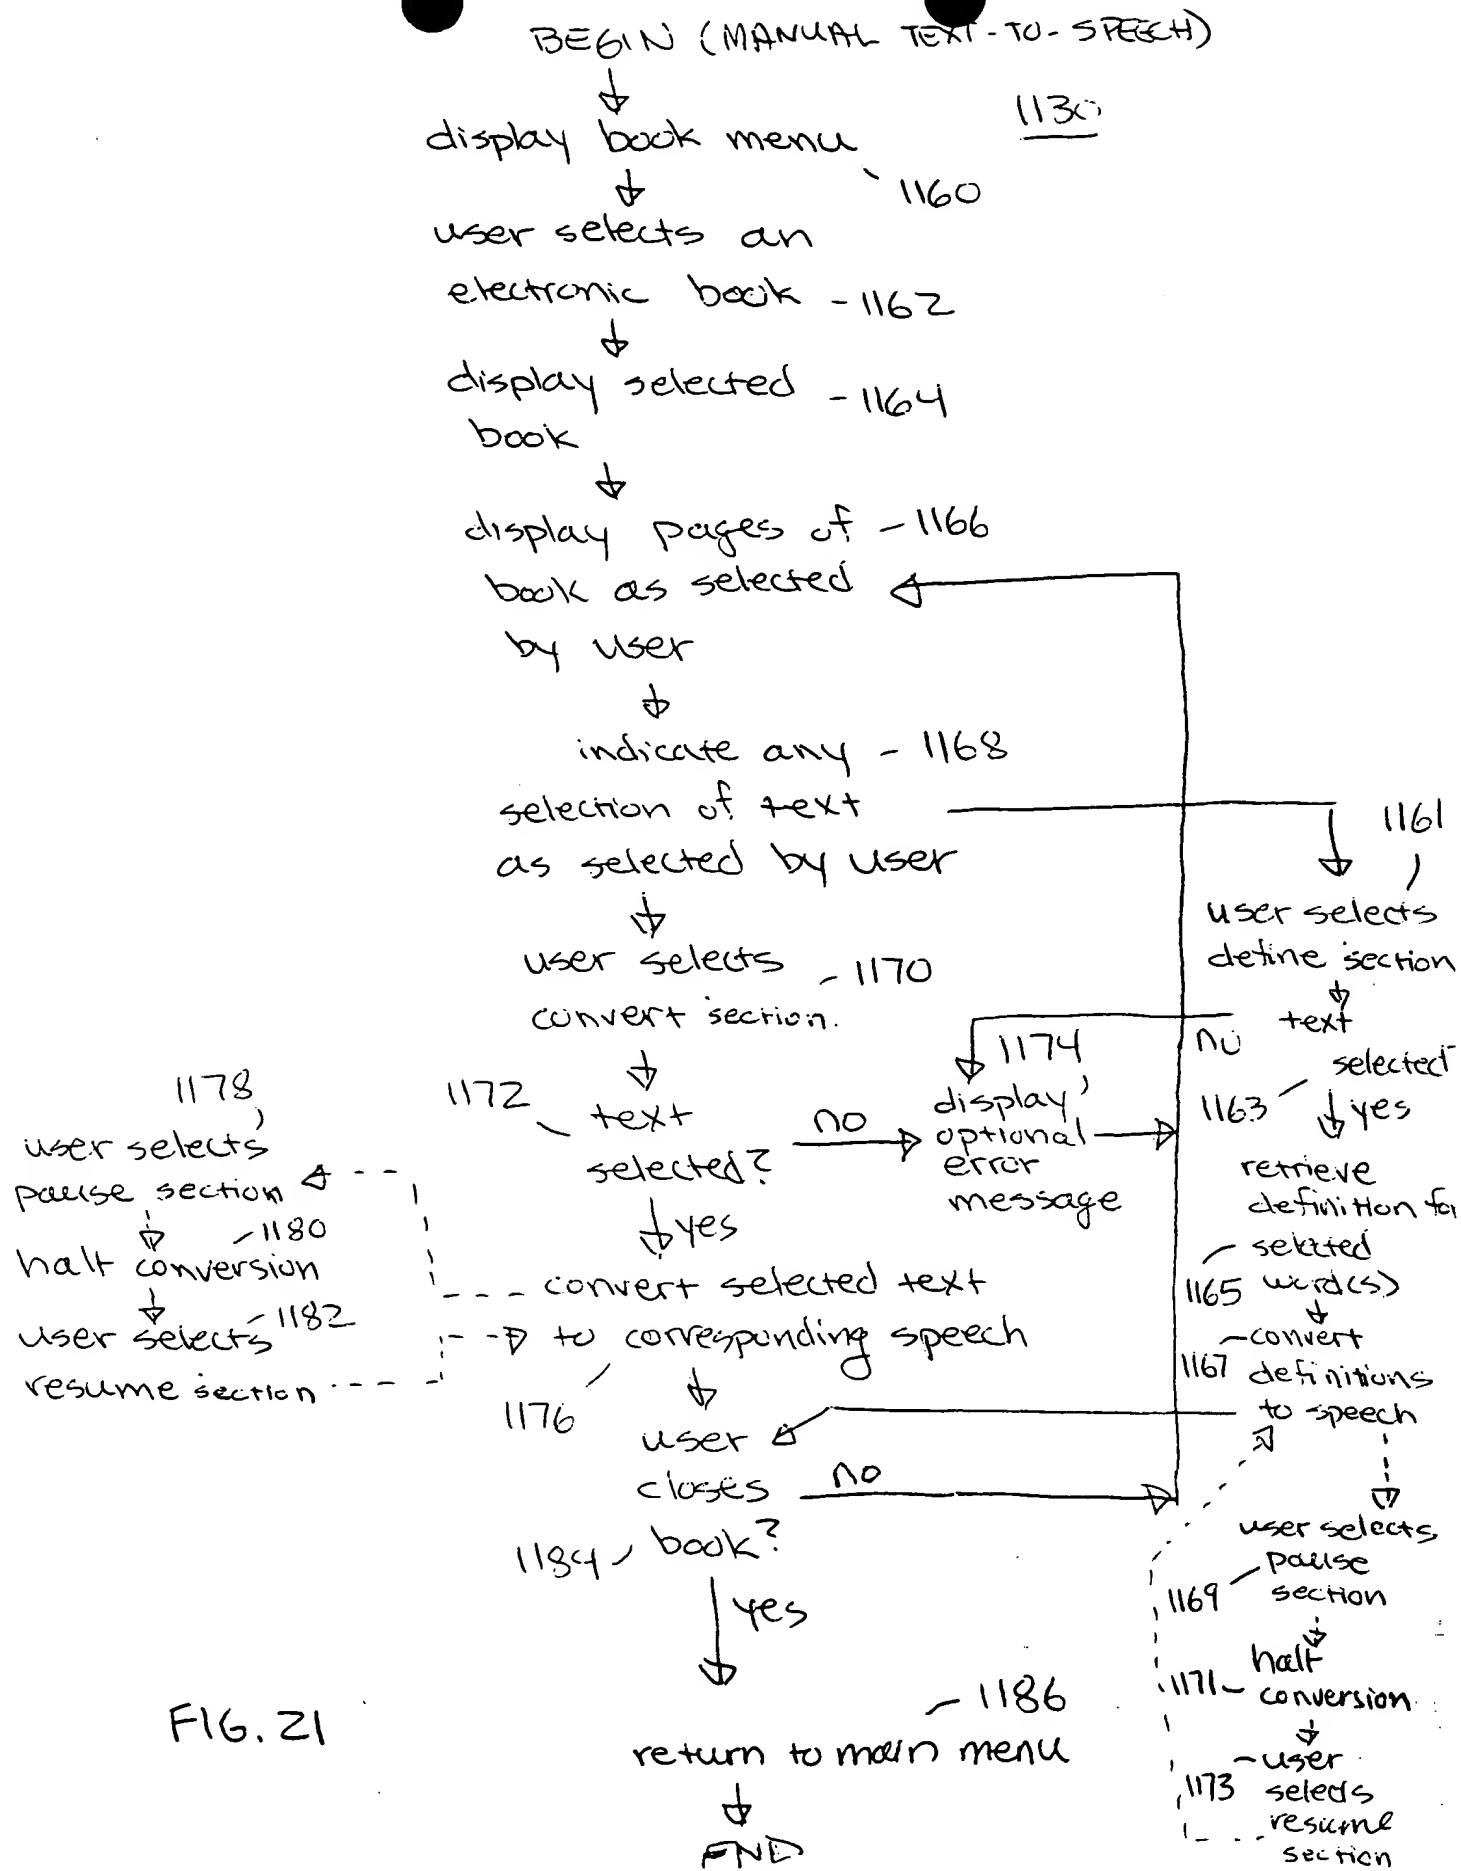 BEGIN (MANUAL TEXT-TO-SPEECH)
1130
display book menu
1160
user selects an
electronic book - 1162
display selected - 1164
book
display pages of - 1166
book as selected
by user
indicate any - 1168
selection of text
as selected by user
user selects - 1170
convert section.
1172
text
selected?
no
yes
1174
display
optional
error
message
convert selected text
to corresponding speech
1176
1178
user selects
pause section
1180
halt conversion
1182
user selects
resume section
user
closes
book?
1184
no
yes
1186
return to main menu
END
1161
user selects
define section
text
selected
no
1163
yes
retrieve
definition for
selected
1165 word(s)
convert
1167 definitions
to speech
user selects
pause
1169 section
halt
1171 conversion
user
1173 selects
resume
section
FIG. 21